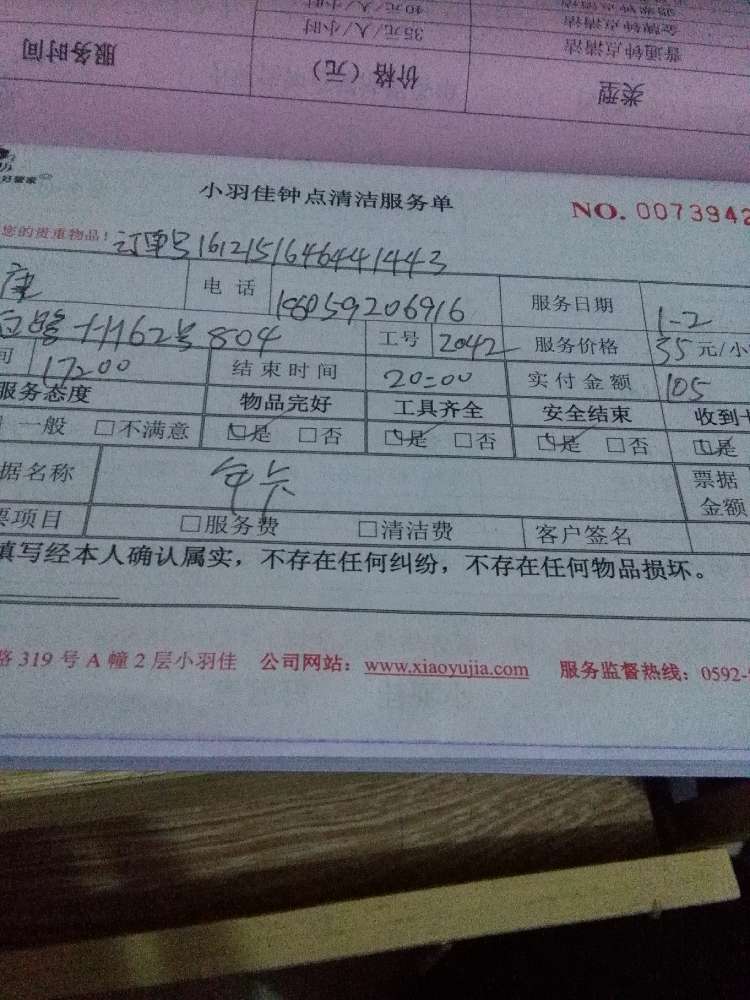 40元/人/小时
普通钟点清洁 35元/人/小时
类型 价格（元） 服务时间
好管家
小羽佳钟点清洁服务单
NO. 0073942
您的贵重物品！订单号161215164644144３
电话 18059206916 服务日期 1-2
62号804 工号 2042 服务价格 35元/小
间 17:00 结束时间 20:00 实付金额 105
服务态度 物品完好 工具齐全 安全结束 收到
一般 □不满意 □是 □否 □是 □否 □是 □否 □是
据名称 年卡 票据
金额
票项目 □服务费 □清洁费 客户签名
填写经本人确认属实，不存在任何纠纷，不存在任何物品损坏。
路319号A幢2层小羽佳 公司网站：www.xiaoyujia.com 服务监督热线：0592-